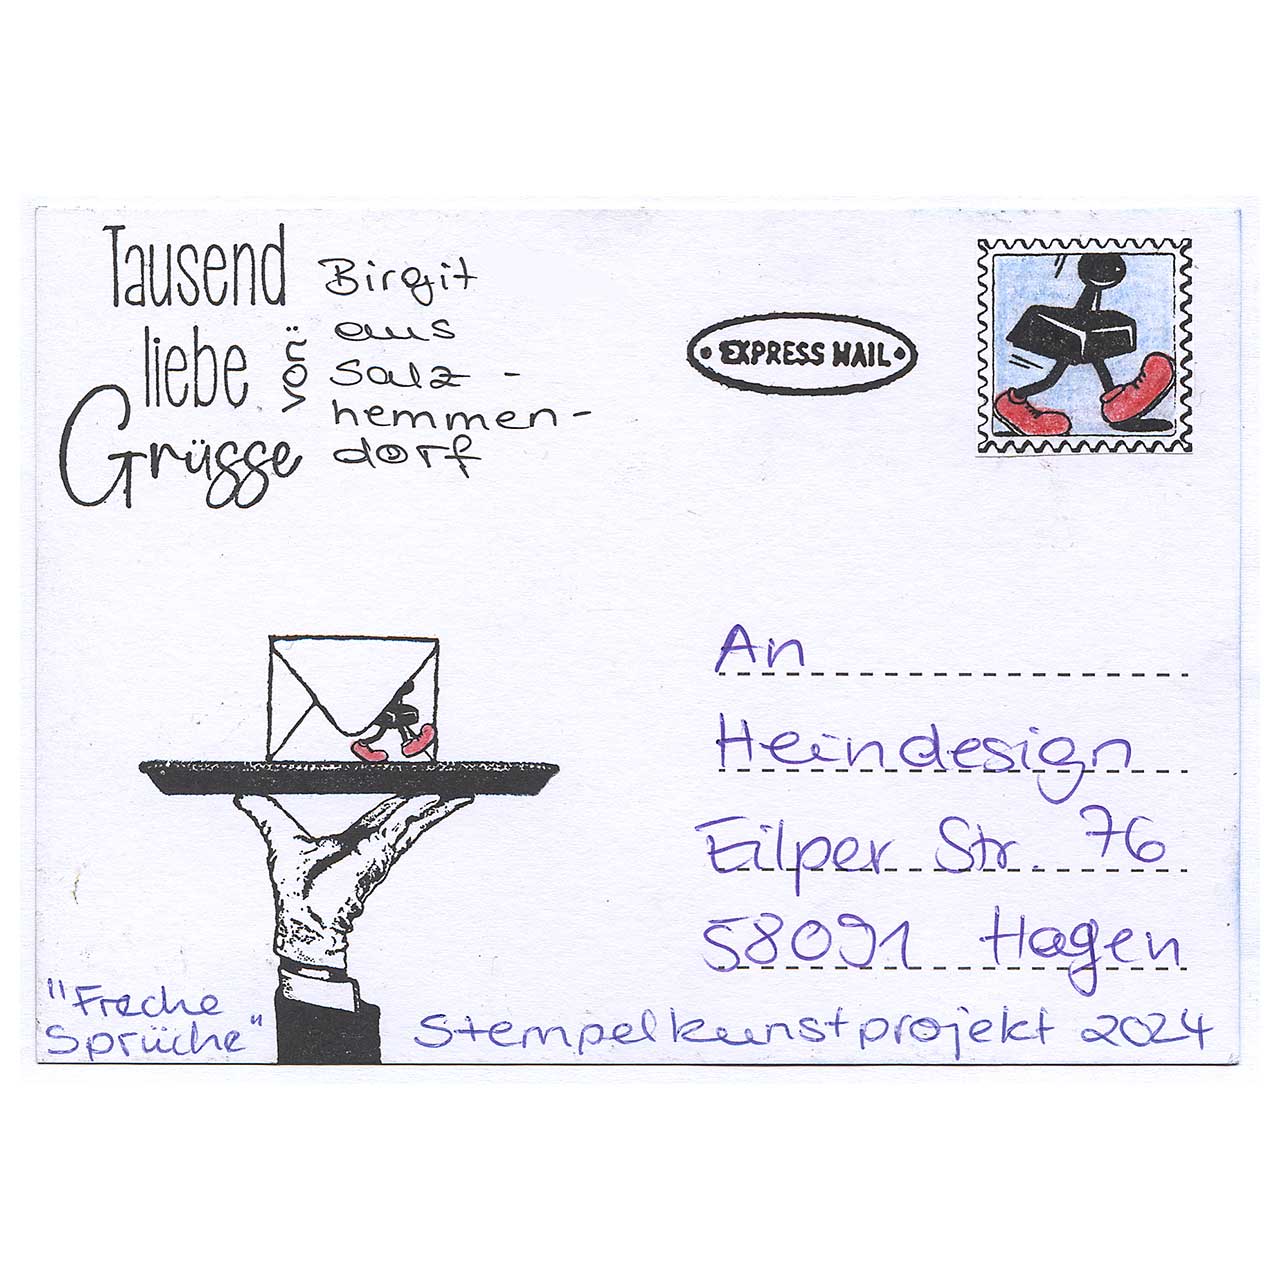 Tausend
liebe
Grüsse
von:
Birgit
aus
Salz-
hemmen-
dorf
EXPRESS MAIL
An
Heindesign
Eilper Str. 76
58091 Hagen
"Freche
Sprüche"
Stempelkunstprojekt 2024